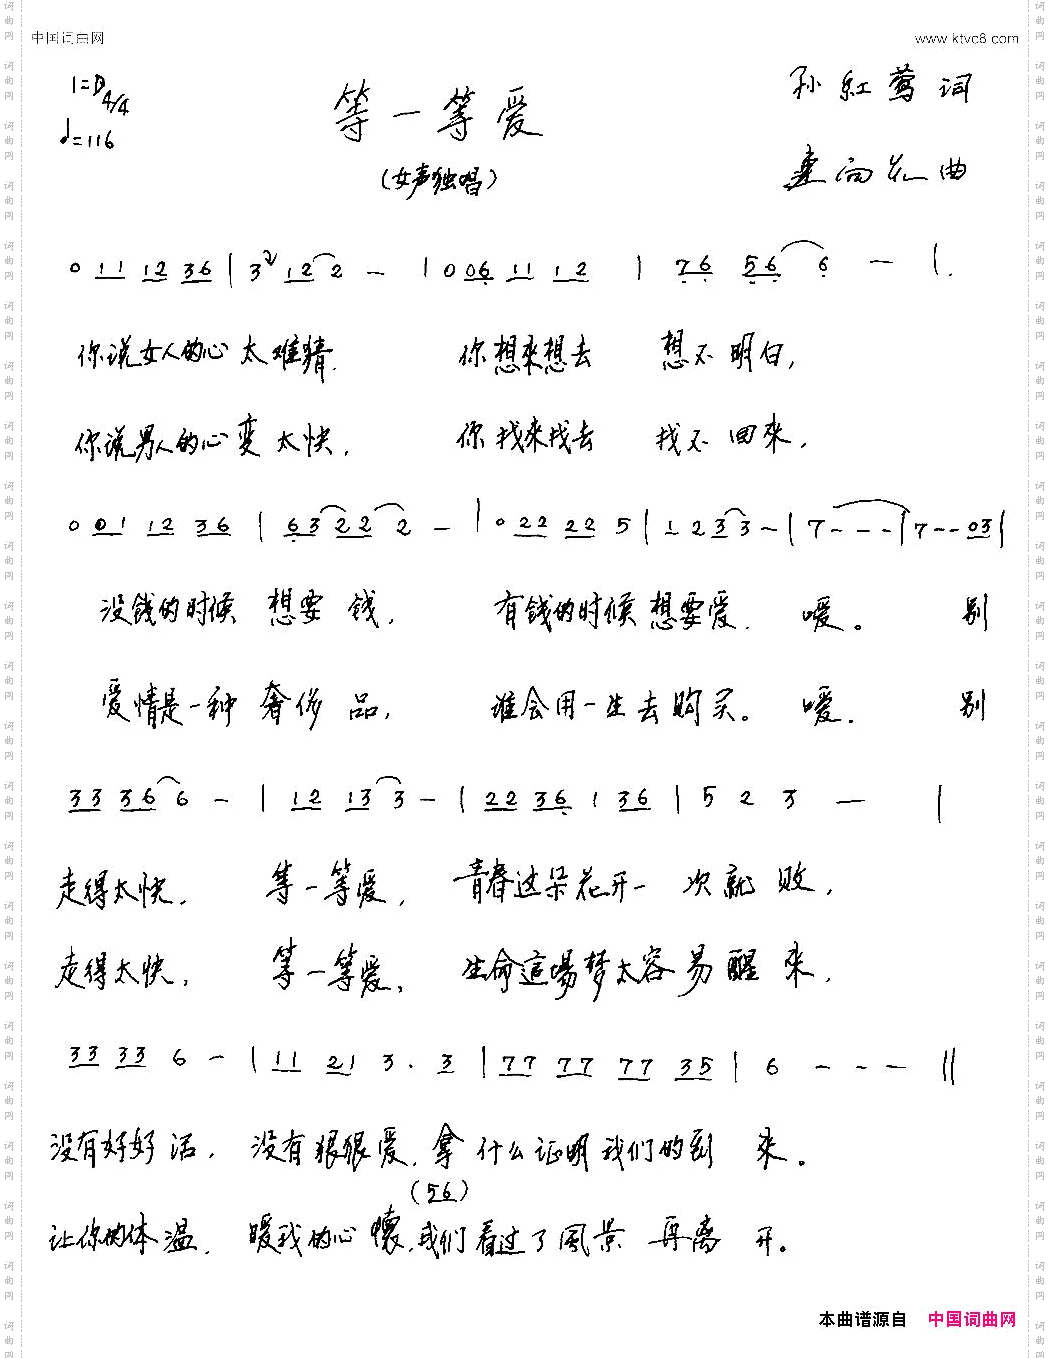 中国词曲网 www.ktvc8.com
1=D 4/4
♩=116
等一等爱
(女声独唱)
孙紅莺 词
曲
0 11 12 36 | 3 12 2 - | 0 06 11 12 | 76 56 6 - |
你说女人的心太难猜 你想來想去 想不明白,
你说男人的心变太快, 你找来找去 找不回来,
0 01 12 36 | 63 22 2 - | 0 22 22 5 | 1 2 3 3 - | 7 - - - | 7 - - 03 |
没钱的时候 想要 钱, 有钱的时候想要爱, 嗳。 别
爱情是一种 奢侈 品, 谁会用一生去购买。 嗳, 别
33 36 6 - | 12 13 3 - | 22 36 1 36 | 5 2 3 — |
走得太快, 等一等爱, 青春这朵花开一 次就 败,
走得太快, 等一等爱, 生命這場梦太容易醒 来,
33 33 6 - | 11 21 3 . 3 | 77 77 77 35 | 6 - - - ||
没有好好 活, 没有狠狠爱,拿什么证明我们的到 来。
(56)
让你的体温, 暖我的心懷,我们看过了風景 再离 开。
本曲谱源自 中国词曲网